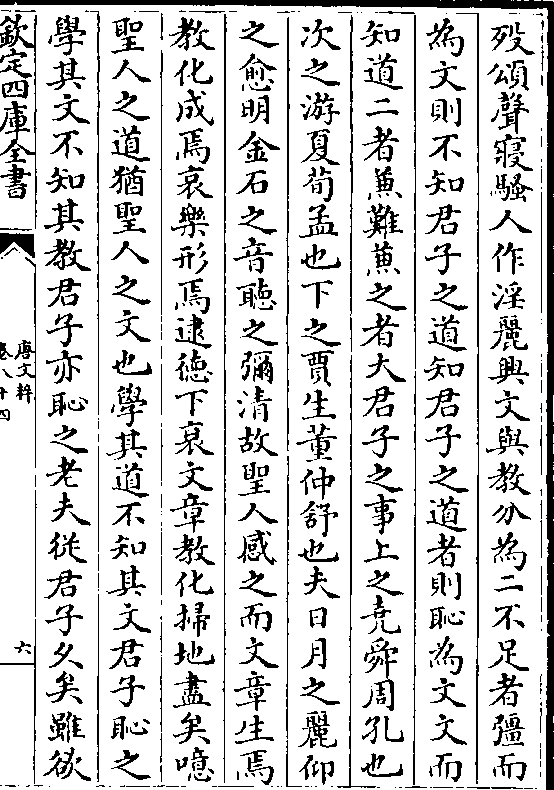 殁頌聲寢騷人作淫麗興文與教分為二不足者彊而
為文則不知君子之道知君子之道者則恥為文文而
知道二者兼難兼之者大君子之事上之堯舜周孔也
次之游夏荀孟也下之賈生董仲舒也夫日月之麗仰
之愈明金石之音聽之彌清故聖人感之而文章生焉
教化成焉哀樂形焉逮德下衰文章教化掃地盡矣噫
聖人之道猶聖人之文也學其道不知其文君子恥之
學其文不知其教君子亦恥之老夫從君子久矣雖欲
欽定四庫全書
唐文粹
卷八十四
六